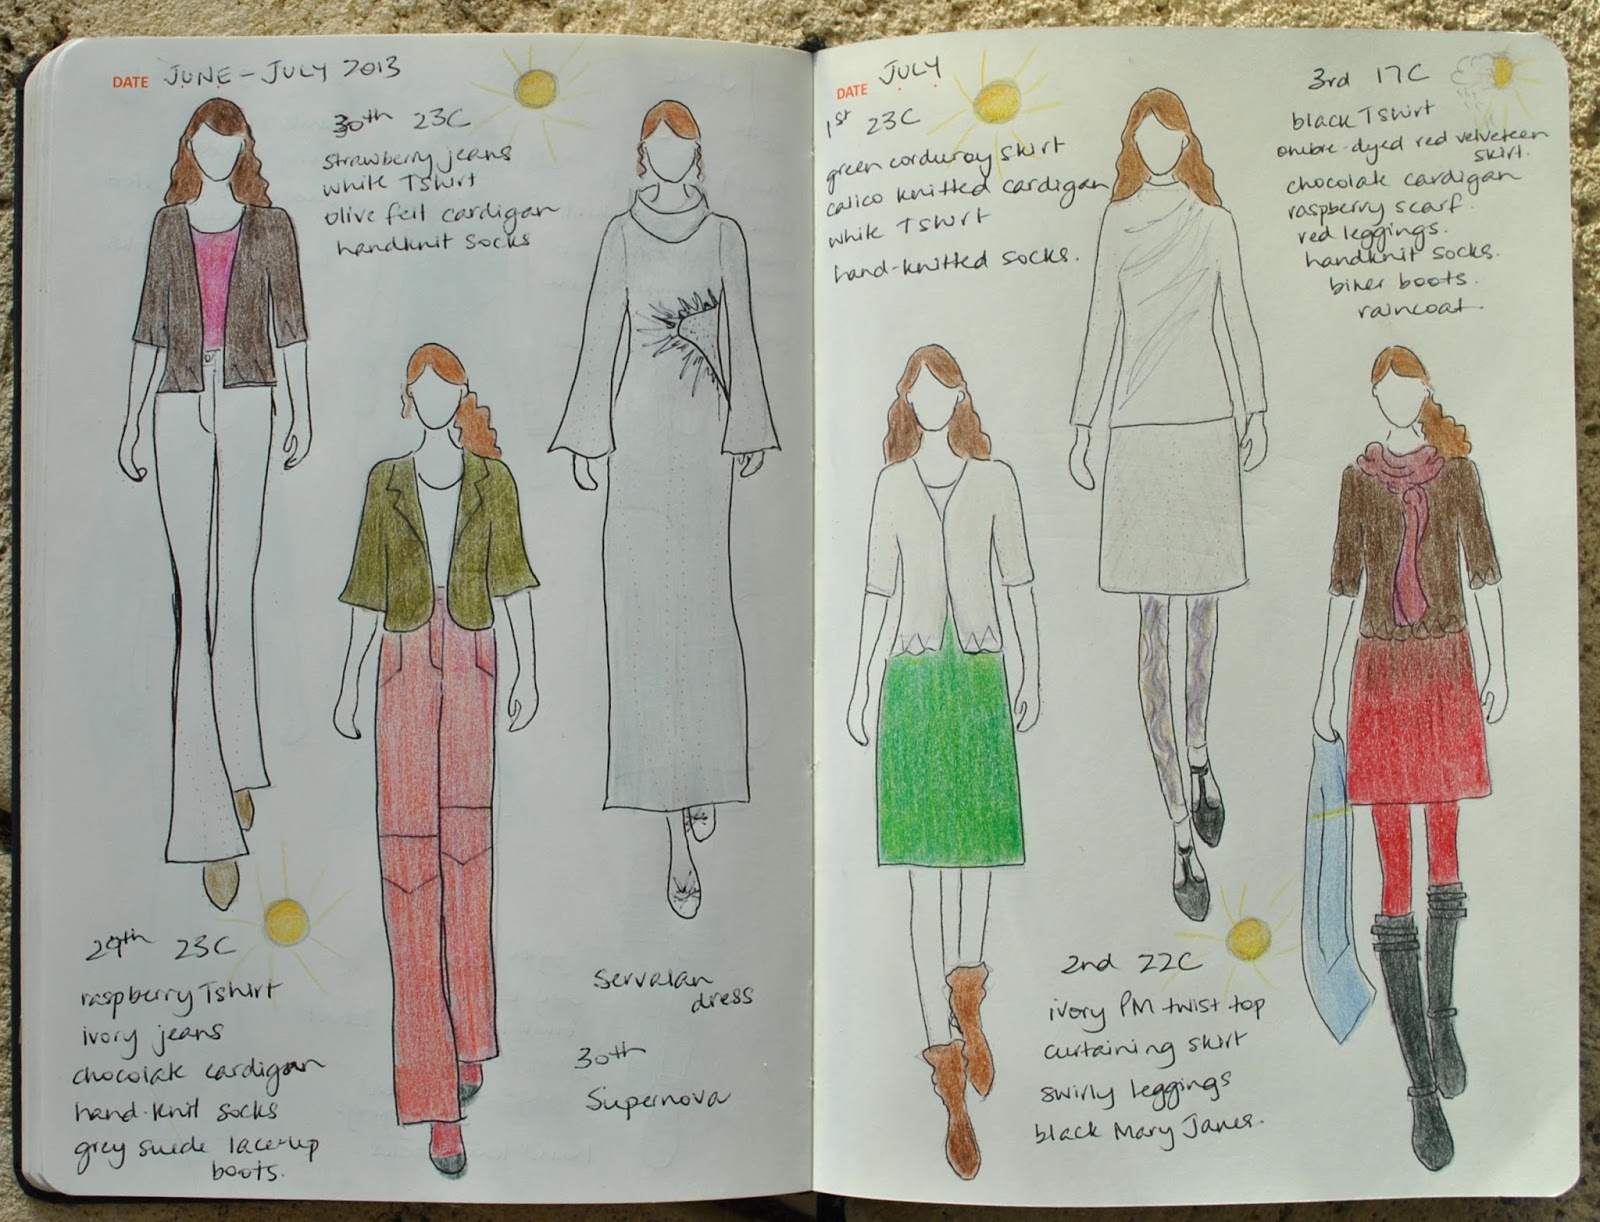 DATE JUNE - JULY 2013
30th 23C
strawberry jeans
white Tshirt
olive felt cardigan
handknit socks
29th 23C
raspberry Tshirt
ivory jeans
chocolate cardigan
hand-knit socks
grey suede lace-up
boots.
Servalan
dress
30th
Supernova
DATE JULY
1st 23C
green corduroy skirt
calico knitted cardigan
white Tshirt
hand-knitted socks.
3rd 17C
black Tshirt
ombre-dyed red velveteen
skirt.
chocolate cardigan
raspberry scarf.
red leggings.
handknit socks.
biker boots.
raincoat.
2nd 22C
ivory PM twist top
curtaining skirt
swirly leggings
black Mary Janes.